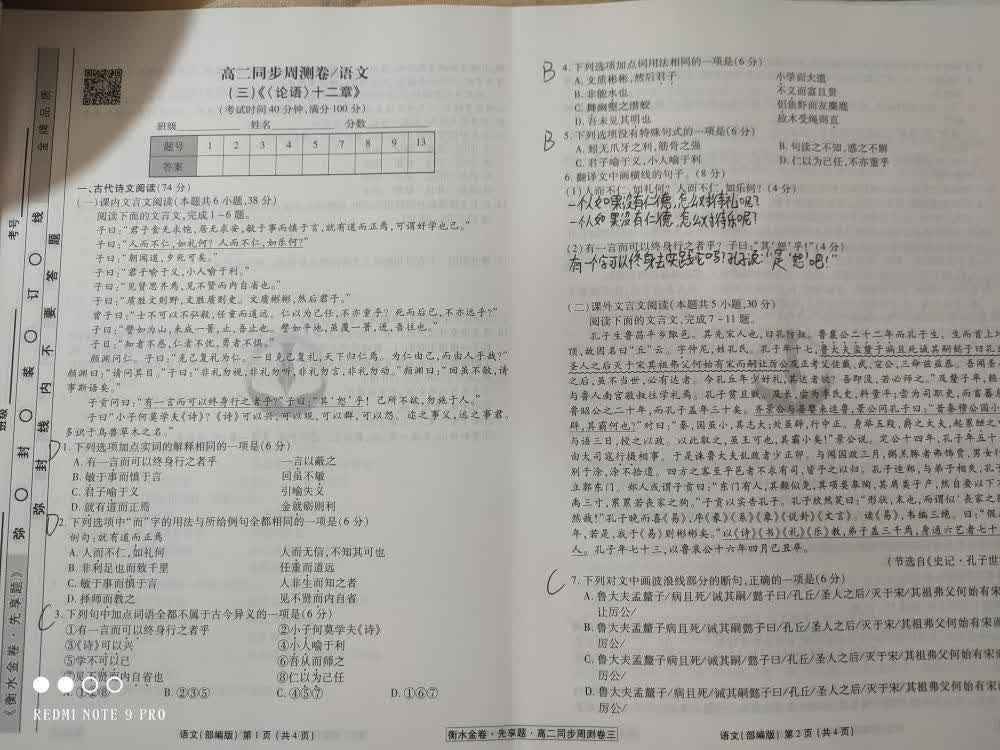 高二同步周测卷/语文
(三)《〈论语〉十二章》
(考试时间40分钟,满分100分)
班级 姓名 分数
题号 1 2 3 4 5 7 8 9 13
答案
一、古代诗文阅读(74分)
(一)课内文言文阅读(本题共6小题,38分)
阅读下面的文言文,完成1-6题。
子曰:“君子食无求饱,居无求安,敏于事而慎于言,就有道而正焉,可谓好学也已。”
子曰:“人而不仁,如礼何?人而不仁,如乐何?”
子曰:“朝闻道,夕死可矣。”
子曰:“君子喻于义,小人喻于利。”
子曰:“见贤思齐焉,见不贤而内自省也。”
子曰:“质胜文则野,文胜质则史。文质彬彬,然后君子。”
曾子曰:“士不可以不弘毅,任重而道远。仁以为己任,不亦重乎?死而后已,不亦远乎?”
子曰:“譬如为山,未成一篑,止,吾止也。譬如平地,虽覆一篑,进,吾往也。”
子曰:“知者不惑,仁者不忧,勇者不惧。”
颜渊问仁。子曰:“克己复礼为仁。一日克己复礼,天下归仁焉。为仁由己,而由人乎哉?”
颜渊曰:“请问其目。”子曰:“非礼勿视,非礼勿听,非礼勿言,非礼勿动。”颜渊曰:“回虽不敏,请
事斯语矣。”
子贡问曰:“有一言而可以终身行之者乎?”子曰:“其‘恕’乎!己所不欲,勿施于人。”
子曰:“小子何莫学夫《诗》?《诗》可以兴,可以观,可以群,可以怨。迩之事父,远之事君。
多识于鸟兽草木之名。”
1.下列选项加点实词的解释相同的一项是(6分)
A.有一言而可以终身行之者乎 一言以蔽之
B.敏于事而慎于言 回虽不敏
C.君子喻于义 引喻失义
D.就有道而正焉 金就砺则利
D
2.下列选项中“而”字的用法与所给例句全都相同的一项是(6分)
例句:就有道而正焉
A.人而不仁,如礼何 人而无信,不知其可也
B.非利足也而致千里 任重而道远
C.敏于事而慎于言 人非生而知之者
D.择师而教之 见不贤而内自省
C
3.下列句中加点词语全都不属于古今异义的一项是(6分)
①有一言而可以终身行之者乎 ②小子何莫学夫《诗》
③《诗》可以兴 ④小人喻于利
⑤学不可以已 ⑥吾从而师之
⑦见不贤而内自省也 ⑧仁以为己任
A.①②⑧ B.②③⑤ C.④⑤⑦ D.①⑥⑦
语文(部编版) 第1页(共4页)
B
4.下列选项加点词用法相同的一项是(6分)
A.文质彬彬,然后君子 小学而大遗
B.非能水也 不义而富且贵
C.舞幽壑之潜蛟 侣鱼虾而友麋鹿
D.吾未见其明也 故木受绳则直
B
5.下列选项没有特殊句式的一项是(6分)
A.蚓无爪牙之利,筋骨之强 B.句读之不知,惑之不解
C.君子喻于义,小人喻于利 D.仁以为己任,不亦重乎
6.翻译文中画横线的句子。(8分)
(1)人而不仁,如礼何?人而不仁,如乐何?(4分)
一个人如果没有仁德,怎么对待礼呢?
一个人如果没有仁德,怎么对待乐呢?
(2)有一言而可以终身行之者乎?子曰:“其‘恕’乎!”(4分)
有一个字可以终身去实践它吗?孔子说:“是‘恕’吧!”
(二)课外文言文阅读(本题共5小题,30分)
阅读下面的文言文,完成7-11题。
孔子生鲁昌平乡陬邑。其先宋人也,曰孔防叔。鲁襄公二十二年而孔子生。生而首上
顶,故因名曰“丘”云。字仲尼,姓孔氏。孔子年十七,鲁大夫孟釐子病且死诫其嗣懿子曰孔丘
圣人之后灭于宋其祖弗父何始有宋而嗣让厉公及正考父佐戴、武、宣公,三命兹益恭。吾闻圣人
之后,虽不当世,必有达者。今孔丘年少好礼,其达者欤?吾即没,若必师之。”及釐子卒,懿
与鲁人南宫敬叔往学礼焉。孔子贫且贱。及长,尝为季氏史,料量平;尝为司职吏,而畜蕃息
鲁昭公之二十年,而孔子盖年三十矣。齐景公与晏婴来适鲁,景公问孔子曰:“昔秦穆公国小
辟,其霸何也?”对曰:“秦,国虽小,其志大;处虽辟,行中正。身举五羖,爵之大夫,起累绁之中
与语三日,授之以政。以此取之,虽王可也,其霸小矣!”景公说。定公十四年,孔子年五十
由大司寇行摄相事。于是诛鲁大夫乱政者少正卯。与闻国政三月,粥羔豚者弗饰贾,男女行
别于涂,涂不拾遗。四方之客至乎邑者不求有司,皆予之以归。孔子适郑,与弟子相失,孔子
立郭东门。郑人或谓子贡曰:“东门有人,其颡似尧,其项类皋陶,其肩类子产,然自要以下不
禹三寸,累累若丧家之狗。”子贡以实告孔子。孔子欣然笑曰:“形状,末也,而谓似‘丧家之狗
然哉!”孔子晚而喜《易》,序《彖》《系》《象》《说卦》《文言》。读《易》,韦编三绝。曰:“假
年,若是,我于《易》则彬彬矣。”以《诗》《书》《礼》《乐》教,弟子盖三千焉,身通六艺者七十
人。孔子年七十三,以鲁哀公十六年四月己丑卒。
(节选自《史记·孔子世
C
7.下列对文中画波浪线部分的断句,正确的一项是(6分)
A.鲁大夫孟釐子/病且死/诫其嗣/懿子曰/孔丘/圣人之后/灭于宋/其祖弗父何始有宋
让厉公/
B.鲁大夫孟釐子病且死/诫其嗣懿子曰/孔丘/圣人之后/灭于宋/其祖弗父何始有宋而
厉公/
C.鲁大夫孟釐子病且死/诫其嗣懿子曰/孔丘/圣人之后/灭于宋/其祖弗父何始有宋
厉公/
D.鲁大夫孟釐子/病且死/诫其嗣懿子曰/孔丘/圣人之后/灭于宋/其祖弗父何始有宋
厉公/
衡水金卷·先享题·高二同步周测卷三
语文(部编版) 第2页(共4页)
金牌品质
考号
班级
弥 封 装 订 线
弥 封 线 内 不 要 答 题
《衡水金卷·先享题》
REDMI NOTE 9 PRO